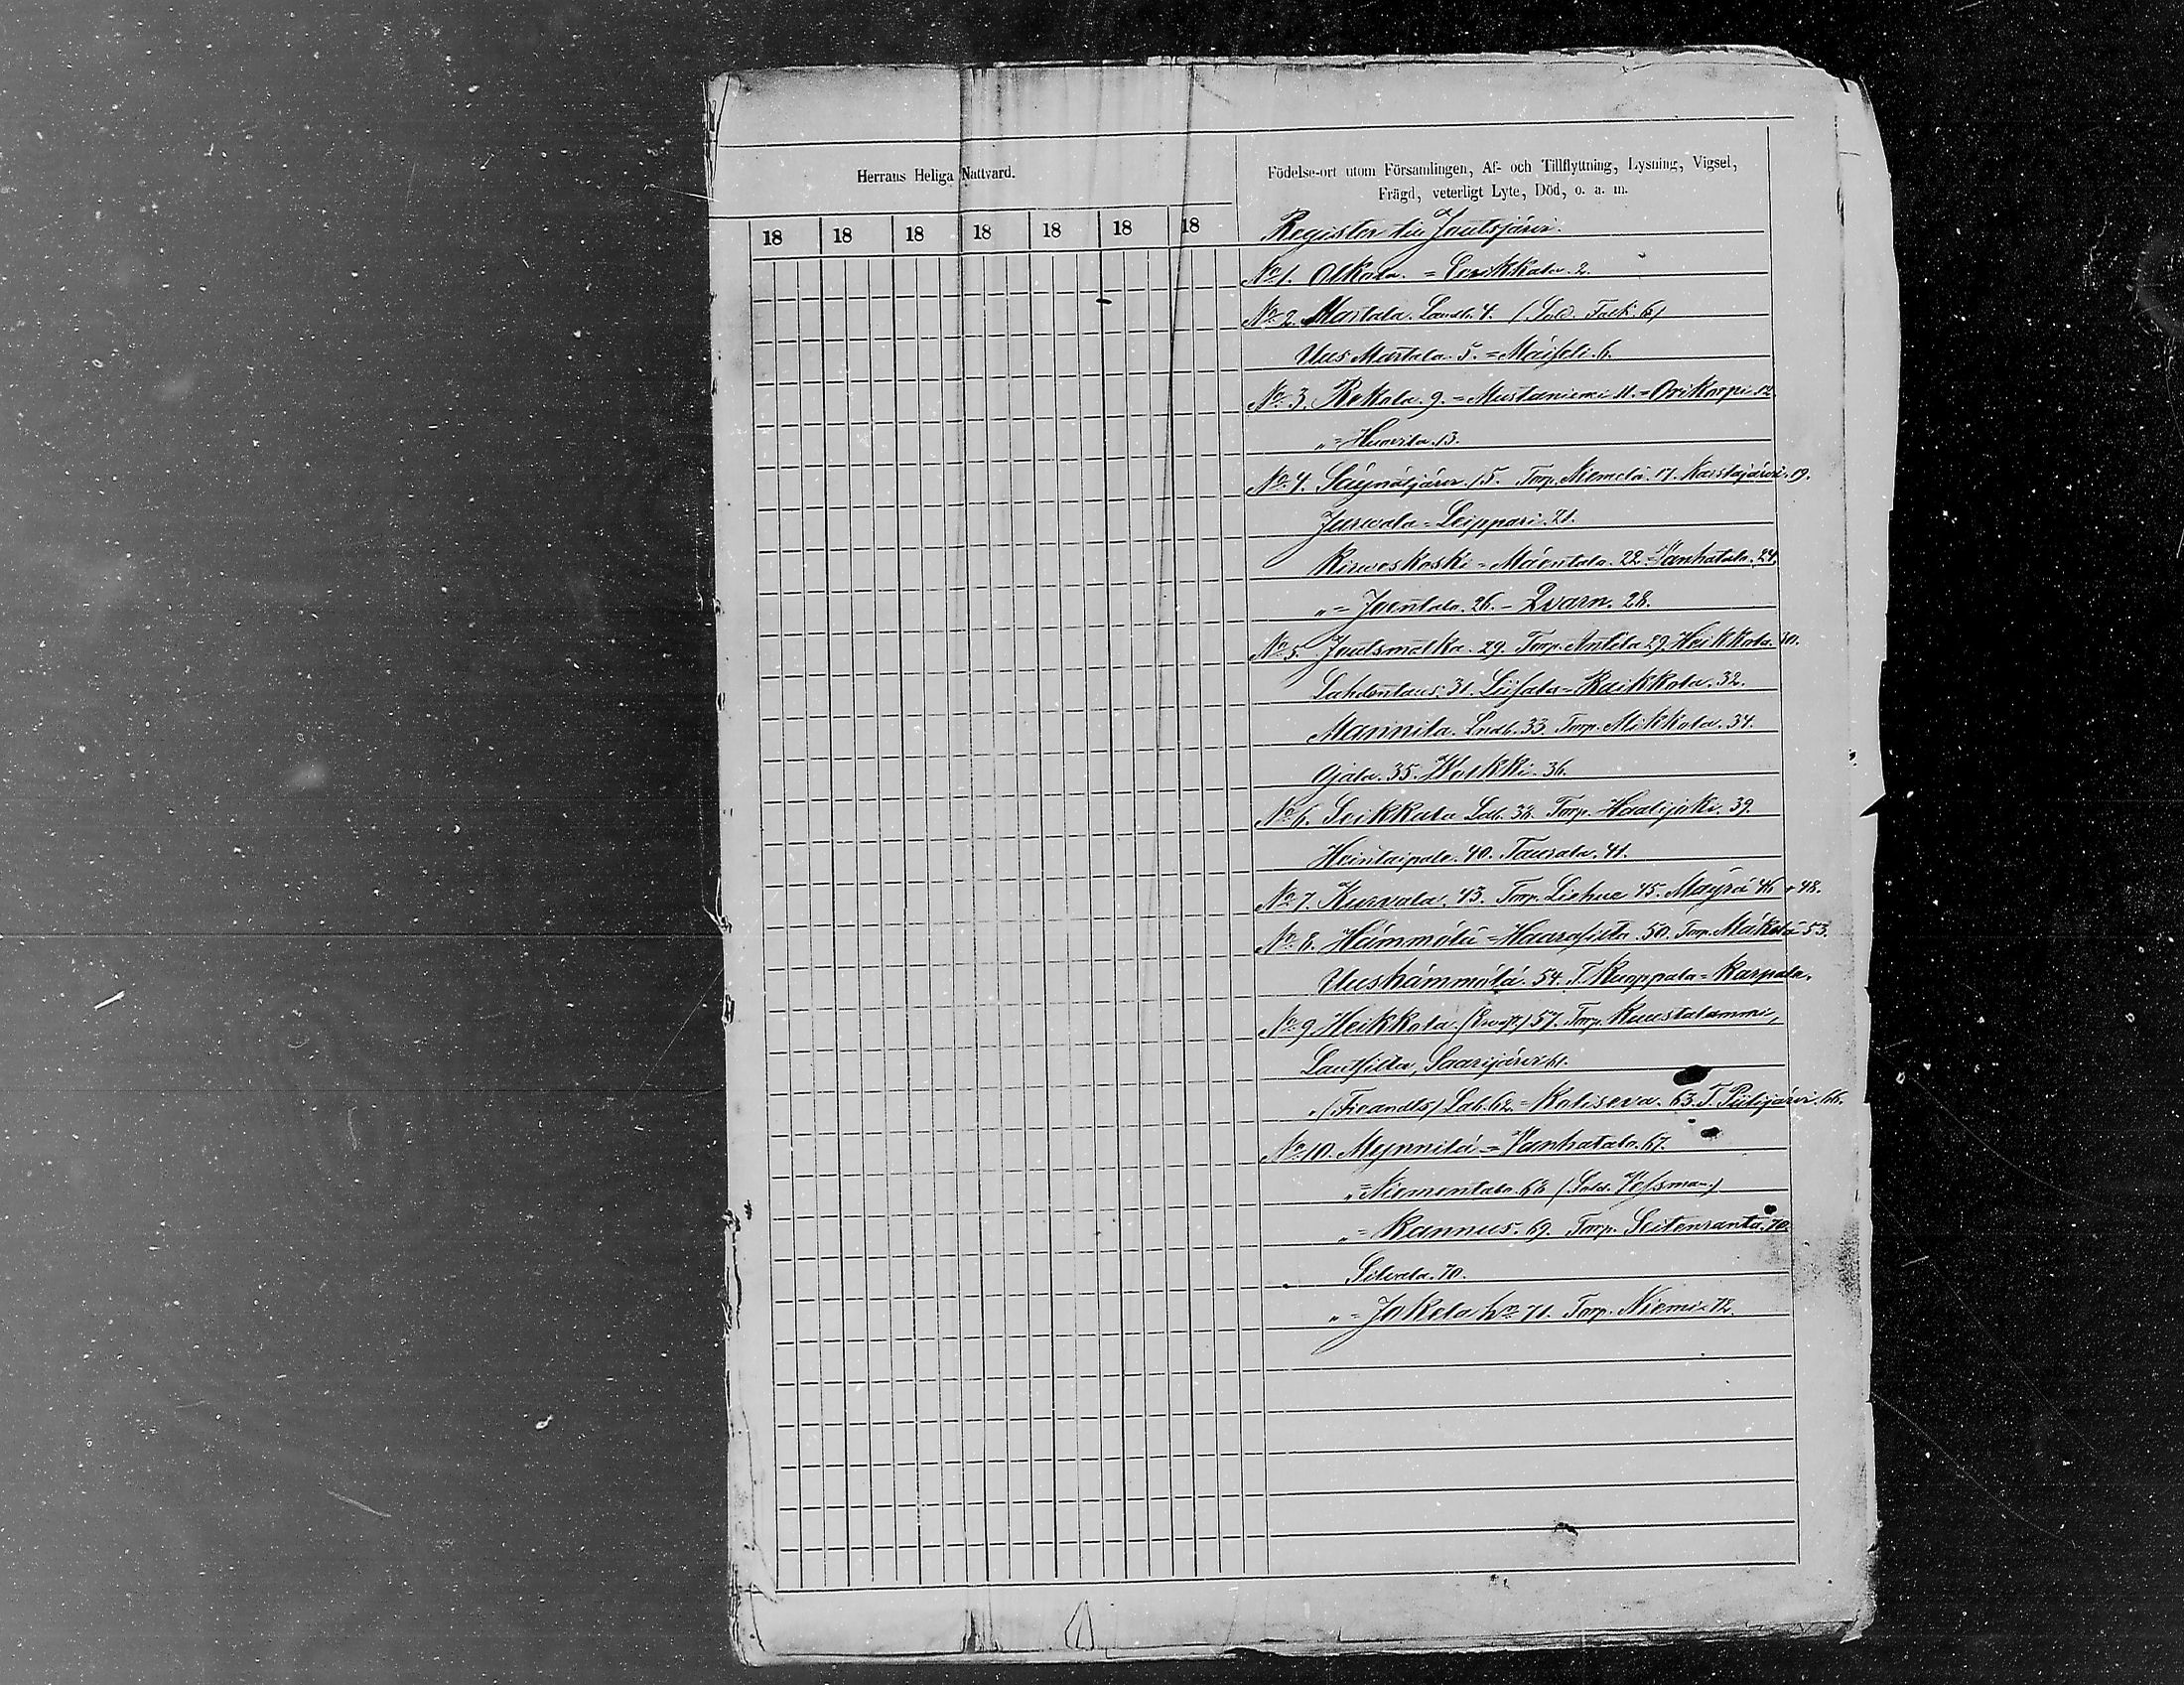 Herrans Heliga Nattvard.
Födelse-ort utom Församlingen, Af- och Tillflyttning, Lysning, Vigsel,
Frägd, veterligt Lyte, Död, o. a. m.
18 18 18 18 18 18 18
Register till Joutsjärvi.
No 1. Ollkola = Leerikkala. 2.
No 2. Martala. Landb. 4. (Sold. Falk. 6)
Uus Martala. 5. = Mäiseli. 6.
No 3. Rekola. 9. = Mustaniemi 11. = Orikorpi 12
" = Huovila. 13.
No 4. Säynätjärvi. 15. Torp. Niemelä. 17. Karstajärvi. 19.
Jurvala = Leippari. 21.
Kirweskoski = Mäentala. 22. = Vanhatalo. 24.
" = Joentalo. 26. = Qvarn. 28.
No 5. Joutsmalka. 29. Torp. Anttila 29. Heikkola. 30.
Lahdentaus. 31. Liisala = Raikkola. 32.
Mannila. Lndb. 33. Torp. Mikkola. 34.
Ojala. 35. Wolkki. 36.
No 6. Seikkala Ldb. 38. Torp. Haalijoki. 39.
Heintaipale. 40. Taurala. 41.
No 7. Kurvala. 43. Torp. Liehue 45. Mäyrä 46 o 48.
No 8. Hämmölä = Haarasilta. 50. Torp. Mäkelä 53.
Uushämmölä. 54. T. Kuoppala = Karpala.
No 9 Heikkola. 57. Torp. Kuustalammi,
Lautsilta, Saarijärvi 61.
" (Freandts) Ldb. 62. = Koliseva. 63. T. Piilijärvi. 66.
No 10. Mynnilä = Vanhatalo. 67.
" = Niementalo. 68 (Sold. Jessman)
" = Kannus. 69. Torp. Seitenranta. 70.
Silvola. 70.
" = Jokela hn 71. Torp. Niemi 72.